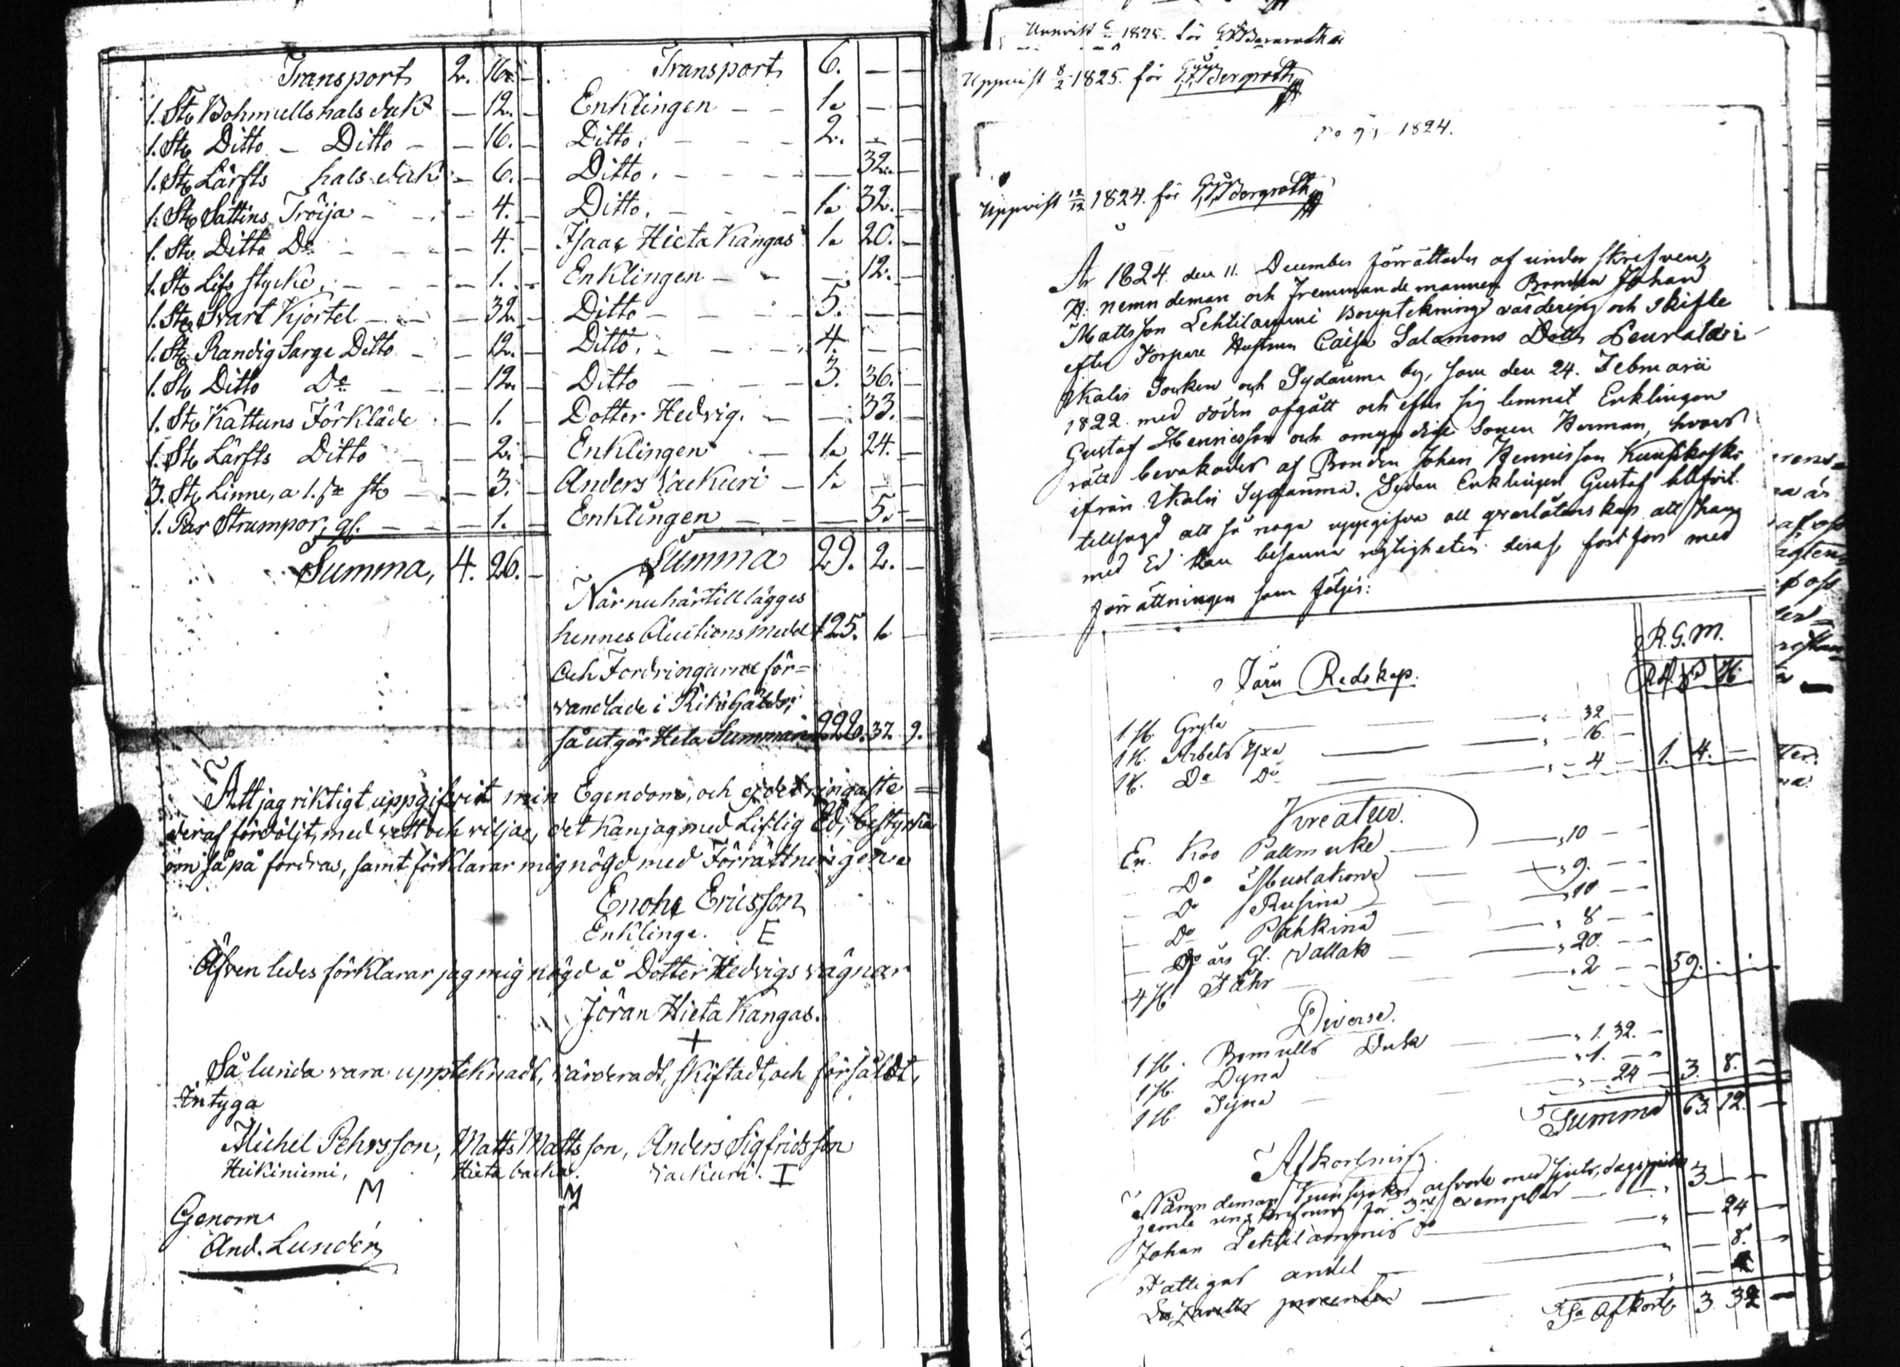 Transport 2. 16. – Transport 6. – –
1. St. Bohmulls halsduk – 12. – Enklingen – – 1. – –
1. St. Ditto – Ditto – – 16. – Ditto. – – – 2. – –
1. St. Lärfts halsduk – 6. – Ditto. – – – – 32. –
1. St. Sattins Tröija – – 4. – Ditto. – – – 1. 32. –
1. St. Ditto Do – 4. – Isaac Hieta Kangas 1. 20. –
1. St. Lifstycke – – – 1. – Enklingen – – – 12. –
1. St. Svart Kjortel – – – 32. – Ditto – – – 5. – –
1. St. Randig Sarge Ditto – – 12. – Ditto. – – – 4. – –
1. St. Ditto Do – – – 12. – Ditto – – – 3. 36. –
1. St. Kattuns Förkläde – 1. – Dotter Hedvig. – – 33. –
1. St. Lärfts Ditto – – 2. – Enklingen – 1. 24. –
3. St. Linne, a 1. st – – 3. – Anders Vackuri – 1. – –
1. Par Strumpor, gl. – – – 1. – Enklingen – – – 5. –
Summa, 4. 26. – Summa 29. 2. –
När nu härtill lägges
hennes Auctions medel 125. 1. –
och Fordringarne för=
vandlade i Riksgälds,
så utgör Hela Summan 222. 37. 9.
Att jag riktigt uppgifvit min Egendom, och ej det ringaste
deraf fördöljt, med vett och vilja, det kan jag med Liflig Ed, bestyrka
om så på fordras, samt förklarar mig nögd med Förrättningen
Enoch Ericsson
Enklinge. E
Äfvenledes förklarar jag mig nögd å Dotter Hedvigs vägnar
Jöran Hieta Kangas.
+
Så lunda vara uppteknadt, värderadt, skiftadt, och försåldt,
Intyga
Michel Pehrsson, Matts Mattsson, Anders Sigfridsson
Heikiniemi, Hieta backa. Vackuri. I
M M
Genom
And. Lundén
1825. för Bergroth
Uppvist 8/2 1825. för Bergroth
1824.
Uppvist 12/12 1824. för Bergroth
År 1824 den 11. December förrättades af underskrefven
H. nemndeman och Fremmande mannen Bonden Johan
Mattsson Lehtilammi Bouptekning värdering och skifte
efter Torpare Hustrun Caisa Salomons Dotter i
Kalis Socken och Sydänma by, som den 24. Februarii
1822 med döden afgått och efter sig lemnat Enklingen
Gustaf Henricsson och omyndige Sonen Herman, hvars
rätt bevakades af Bonden Johan Hennisson
ifrån Kalis Sydänma. Sedan Enklingen Gustaf blifvit
tillsagd att så noga uppgifva all qvarlåtenskap att han
med Ed kan besanna rigtigheten deraf, fortfors med
förrättningen som följer:
R.G.M.
Järn Redskap.
1 St. Gryta – 32 –
1 St. Arbets Yxa – 16 –
1 St. Do Do – 4 – 1. 4. –
Kreatur.
En Koo Pallmuke – 10 – –
Do Mustakona – 9. – –
Do Rusina – 10 – –
Do Pähkinä – 8 – –
års Gl. Vallak – 20. – –
4 St. Fåhr – 2 – – 59. – –
Diverse.
1 St. Bomulls Duk – 1. 32. –
1 St. Dyna – 1. – –
1 St. Dyna – 24 – 3. 8. –
Summa 63. 12. –
Afkortning.
Nämndeman arfvode med
jemte renskrifning för exemplar – 3 – –
Johan Lehtilammis Do – – 24 –
Fattigas andel – – 8. –
Afkort. 3. 32 –